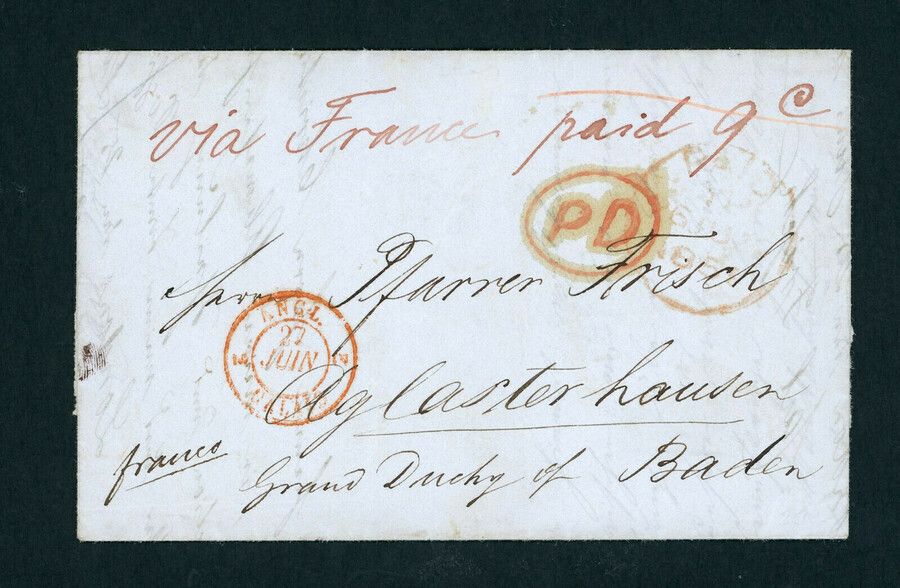 via France paid 9 c
PD
Herrn Pfarrer Frisch
ANGL.
27
JUIN
2 2
Aglasterhausen
franco
Grand Duchy of Baden